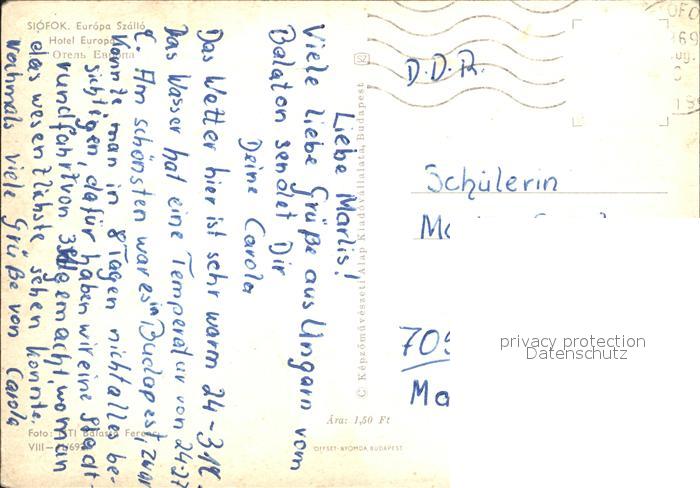 SIÓFOK. Európa Szálló
Hotel Europa
Отель Европа
Liebe Marlis!
Viele liebe Grüße aus Ungarn vom
Balaton sendet Dir
Deine Carola
Das Wetter hier ist sehr warm 24-31°C.
Das Wasser hat eine Temperatur von 24-27
C. Am schönsten war es in Budapest, zwar
konnte man in 8 Tagen nicht alles be-
sichtigen, dafür haben wir eine Stadt-
rundfahrt von 3 gemacht, wo man
das wesentlichste sehen konnte.
Nochmals viele Grüße von Carola
Foto: MTI Balassa Ferenc
C Képzőművészeti Alap Kiadóvállalata, Budapest
SZ
Ára: 1,50 Ft
OFFSET-NYOMDA BUDAPEST
D.D.R.
Schülerin
705
Ma
privacy protection
Datenschutz